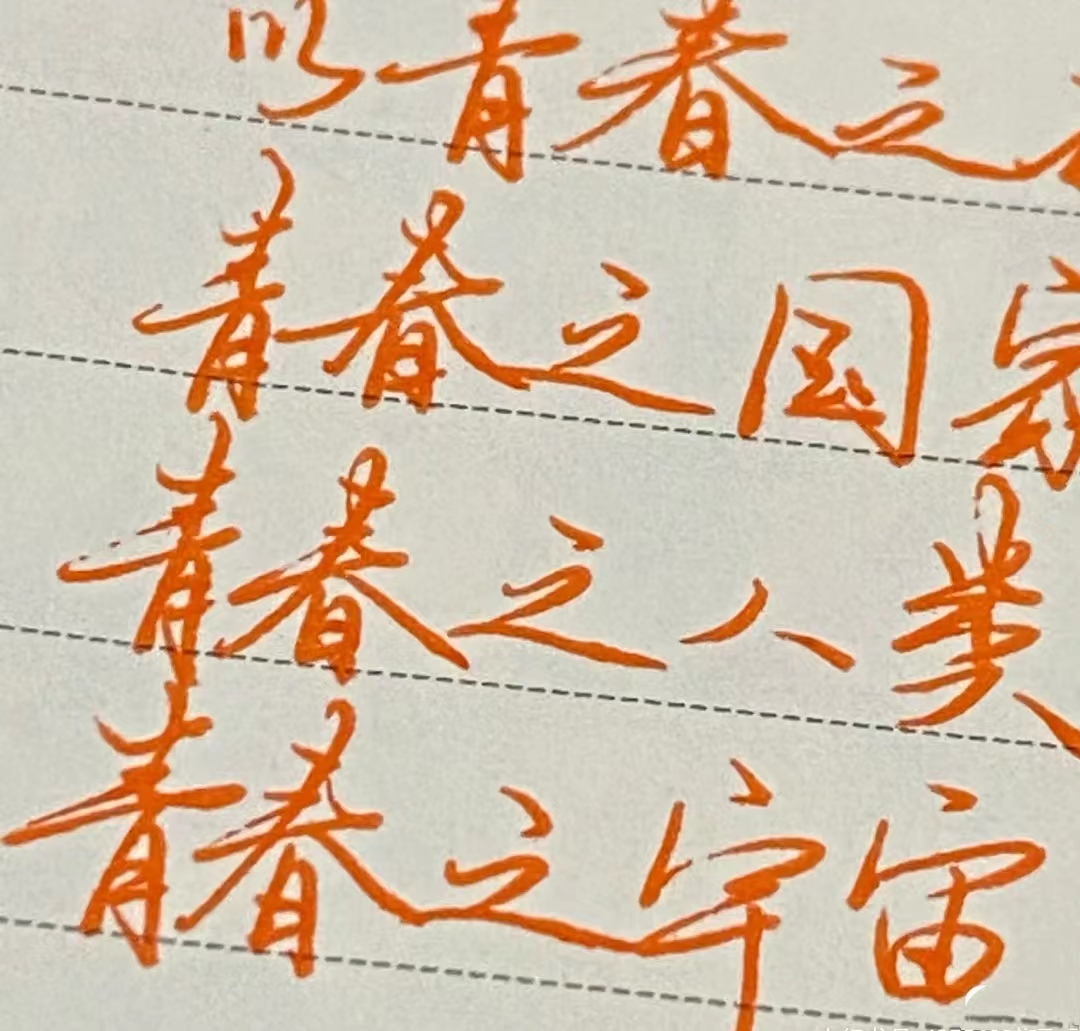 以青春之
青春之国家
青春之人类
青春之宇宙